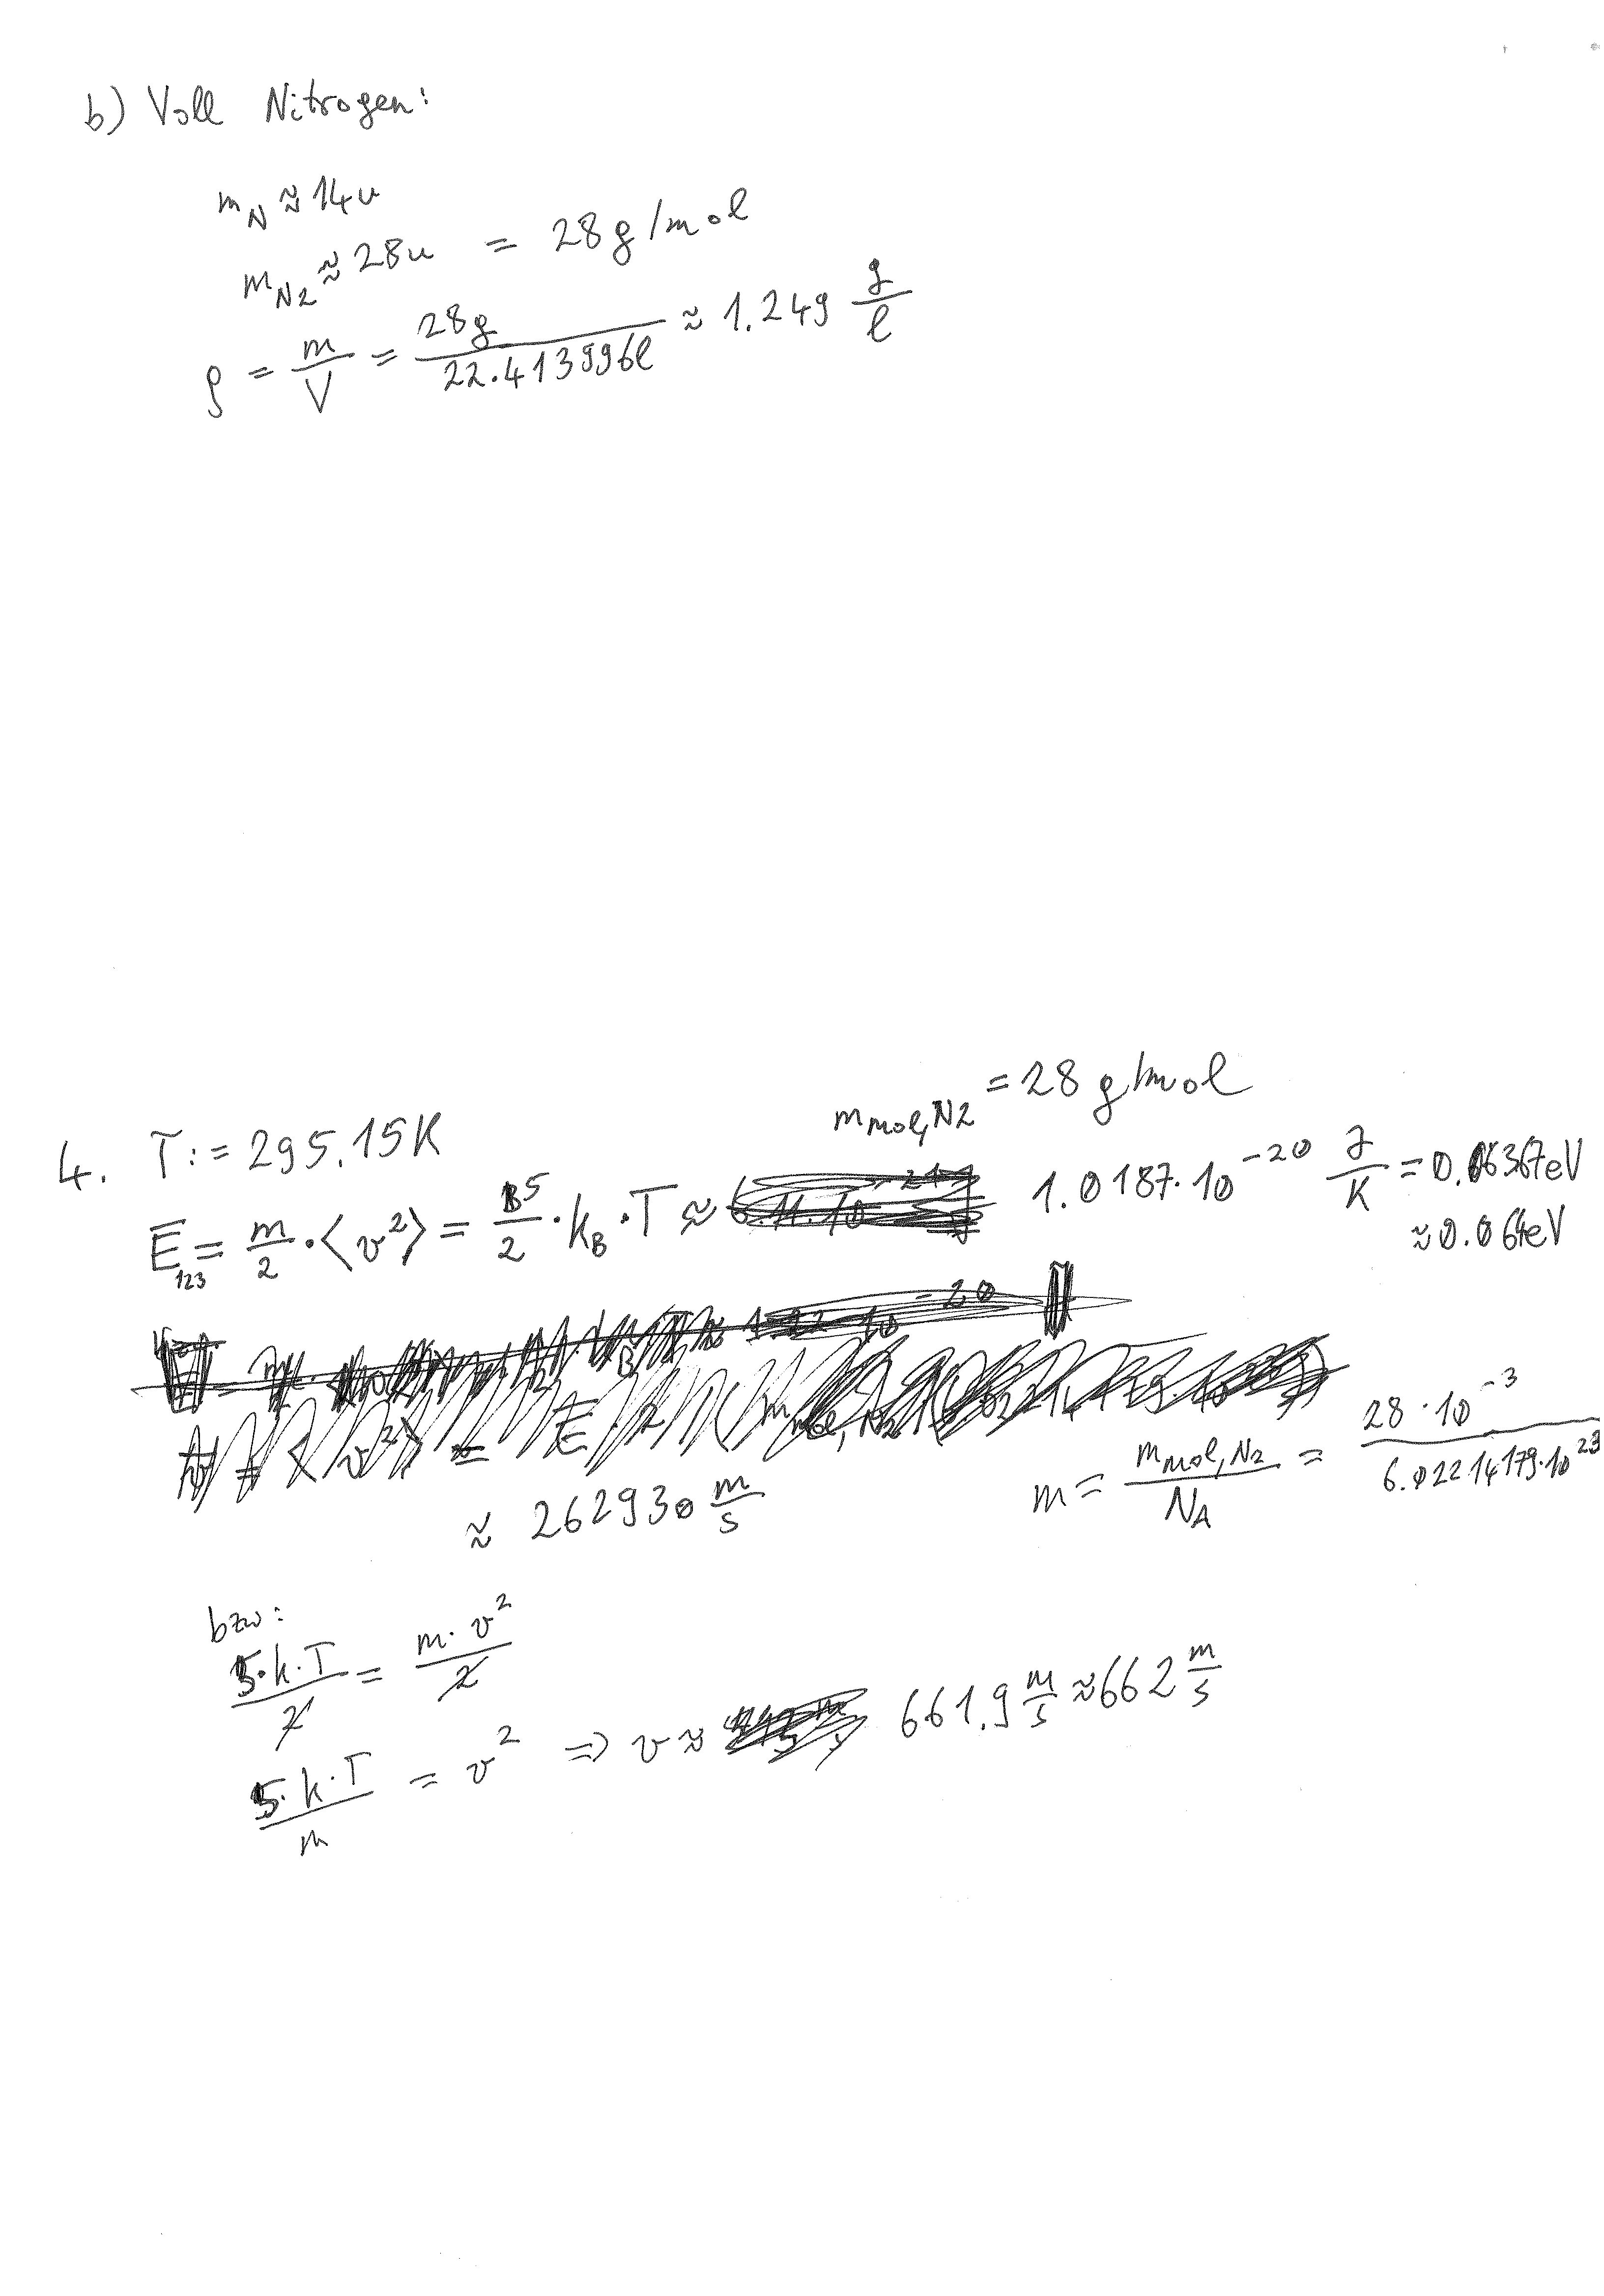 b) Voll Nitrogen:
m_N ≈ 14u
m_N2 ≈ 28u = 28g/mol
ρ = m/V = 28g/22.413996l ≈ 1.249 g/l
m_mol,N2 = 28 g/mol
4. T := 295.15K
E_123 = m/2 · ⟨v²⟩ = 5/2 · k_B · T ≈ 1.0187·10^-20 J/K = 0.06367eV
≈ 0.064eV
≈ 262930 m/s
m = m_mol,N2/N_A = 28·10^-3/6.02214179·10^23
bzw:
5·k·T/2 = m·v²/2
5·k·T/m = v² ⇒ v ≈ 661.9 m/s ≈ 662 m/s